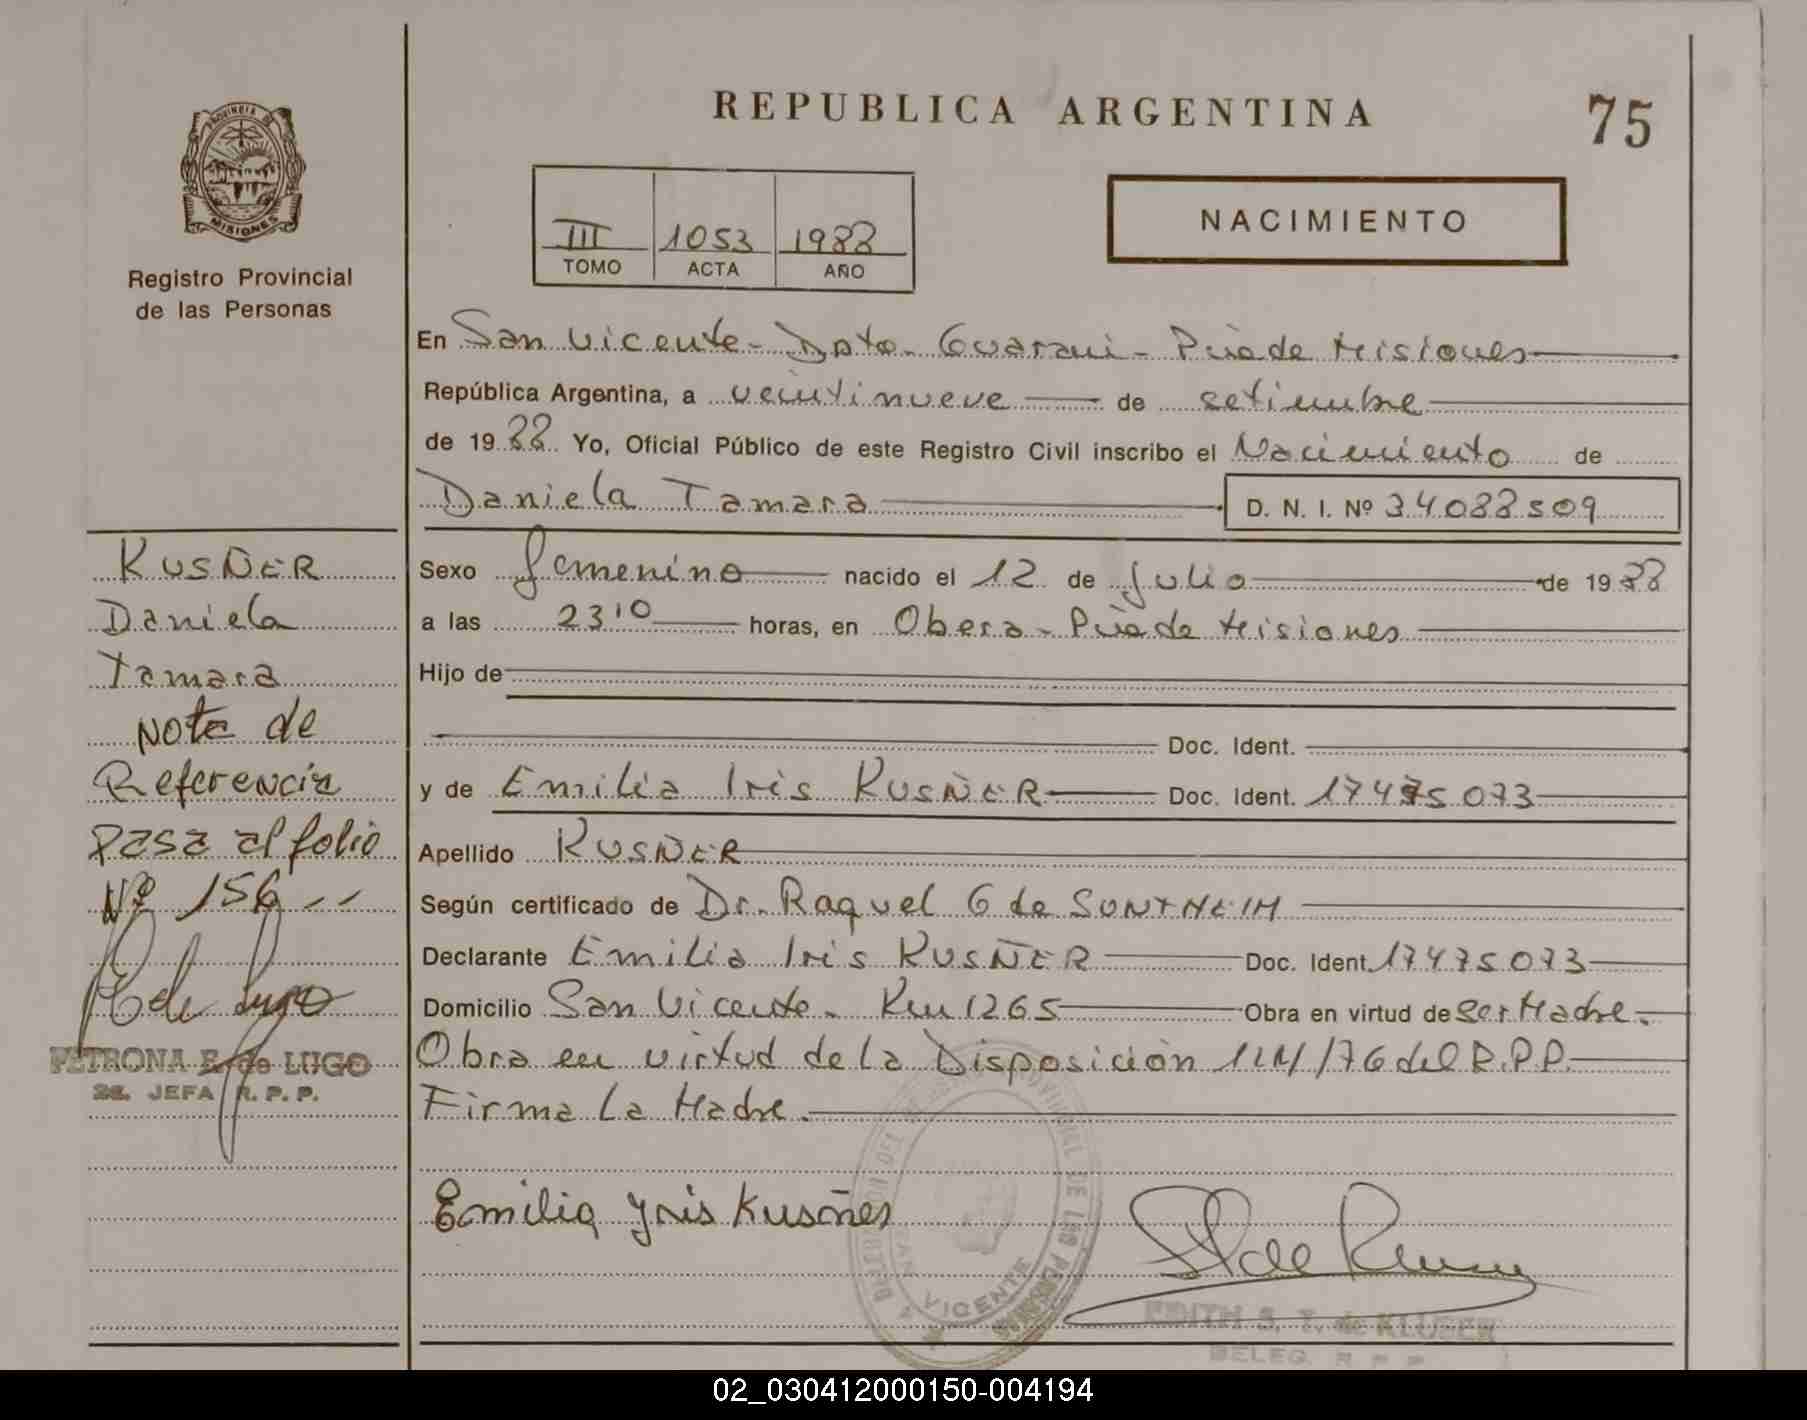 REPUBLICA ARGENTINA
75
PROVINCIA DE
MISIONES
Registro Provincial
de las Personas
III 1053 1988
TOMO ACTA AÑO
NACIMIENTO
En San Vicente - Dpto. Guarani - Pcia de Misiones
República Argentina, a veintinueve de setiembre
de 1988 Yo, Oficial Público de este Registro Civil inscribo el Nacimiento de
Daniela Tamara D. N. I. Nº 34088509
Sexo femenino nacido el 12 de Julio de 1988
a las 23 10 horas, en Obera - Pcia de Misiones
Hijo de
Doc. Ident.
y de Emilia Iris KUSÑER Doc. Ident. 17475073
Apellido KUSÑER
Según certificado de Dr. Raquel G de SONTHEIM
Declarante Emilia Iris KUSÑER Doc. Ident. 17475073
Domicilio San Vicente. Km 1265 Obra en virtud de ser Madre.
Obra en virtud de la Disposición /76 del R.P.P.
Firma La Madre.
Emilia Yris Kusñer
KUSÑER
Daniela
Tamara
Nota de
Referencia
Pasa al folio
Nº 156 --
E de Lugo
PETRONA E. de LUGO
JEFA R. P. P.
PROVINCIAL DE LAS PERSONAS
SAN VICENTE
EDITH S. T. de KLUSER
DELEG. R. P. P.
02_030412000150-004194